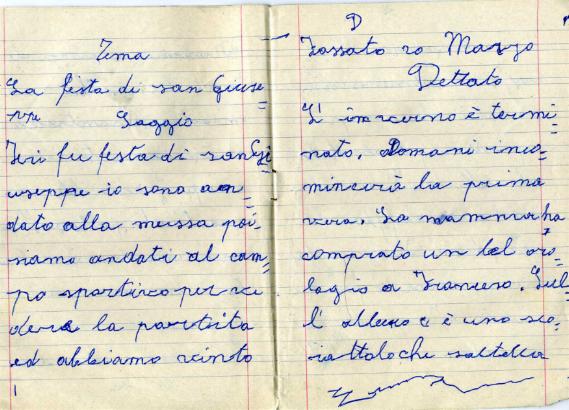 Tema
La festa di san Giuse=
ppe
Saggio
Ieri fu festa di san Gi
useppe io sono an
dato alla messa poi
siamo andati al cam=
po sportivo per ve
dere la partita
ed abbiamo vinto
D
Fossato 20 Marzo
Dettato
L' inverno è termi=
nato. Domani inco=
mincerà la prima
vera. La mamma ha
comprato un bel oro=
logio a Franceso. Sul
l' albero c è uno sco=
iattolo che saltella